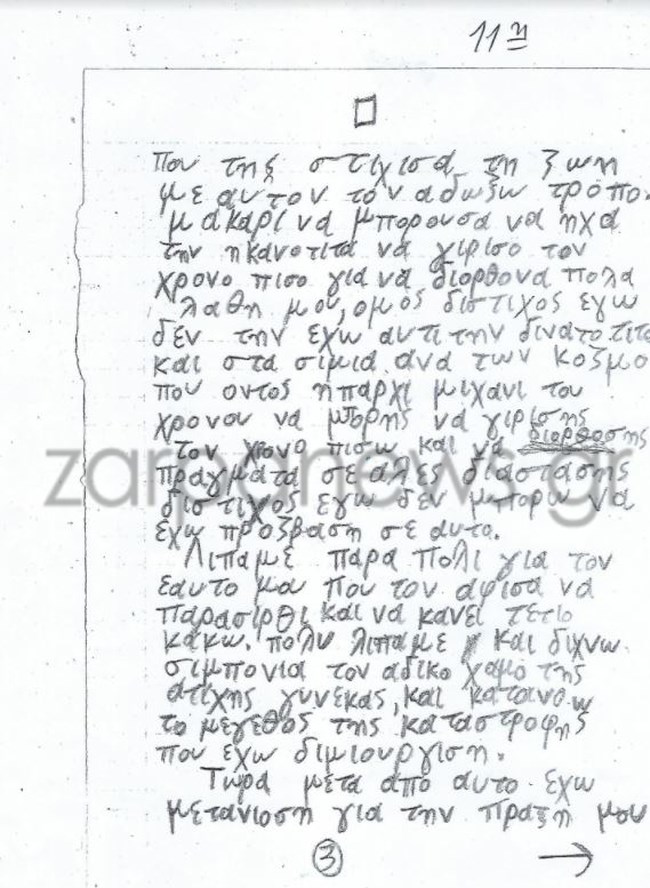 11η
που της στιχισα τη ζωη
με αυτον τον αδωξω τροπο.
μακαρι να μπορουσα να ηχα
την ηκανοτιτα να γιρισο τον
χρονο πισο για να διορθονα πολα
λαθη μου, ομος διστιχος εγω
δεν την εχω αυτι την δινατοτιτα
και στα σιμια ανα των κοζμο
που οντος ηπαρχι μιχανι του
χρονου να μπορης να γιρισης
τον χρονο πισω και να διορθοσης
πραγματα σε αλες διαστασης
διστιχος εγω δεν μπορω να
εχω προζβαση σε αυτο.
Λιπαμε παρα πολι για τον
εαυτο μου που τον αφισα να
παρασιρθι και να κανει τετιο
κακω. πολυ λιπαμε και διχνω
σιμπονια τον αδικο χαμο της
ατιχης γυνεκας, και κατανοω
το μεγεθος της καταστροφης
που εχω διμιουργιση.
Τωρα μετα απο αυτο εχω
μετανιοση για την πραξη μου
3 →
zarpanews.gr